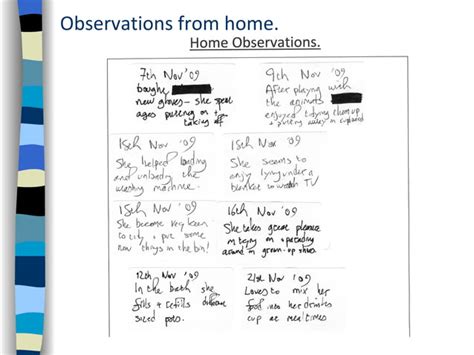 Observations from home.
Home Observations.
7th Nov '09
bought
new gloves - she spent
ages putting on +
taking off
9th Nov '09
After playing with
the animals
enjoyed tidying them up
+ putting away in cupboard
15th Nov '09
She helped loading
and unloading the
washing machine.
15th Nov '09
She seems to
enjoy lying under a
blanket to watch TV
15th Nov '09
She become very keen
to tidy + put some
new things in the bin!
16th Nov '09
She takes great pleasure
in trying on + parading
around in grown-up shoes.
12th Nov '09
In the bath she
fills + refills different
sized pots.
21st Nov '09
Loves to mix her
food into her drinks
cup at mealtimes